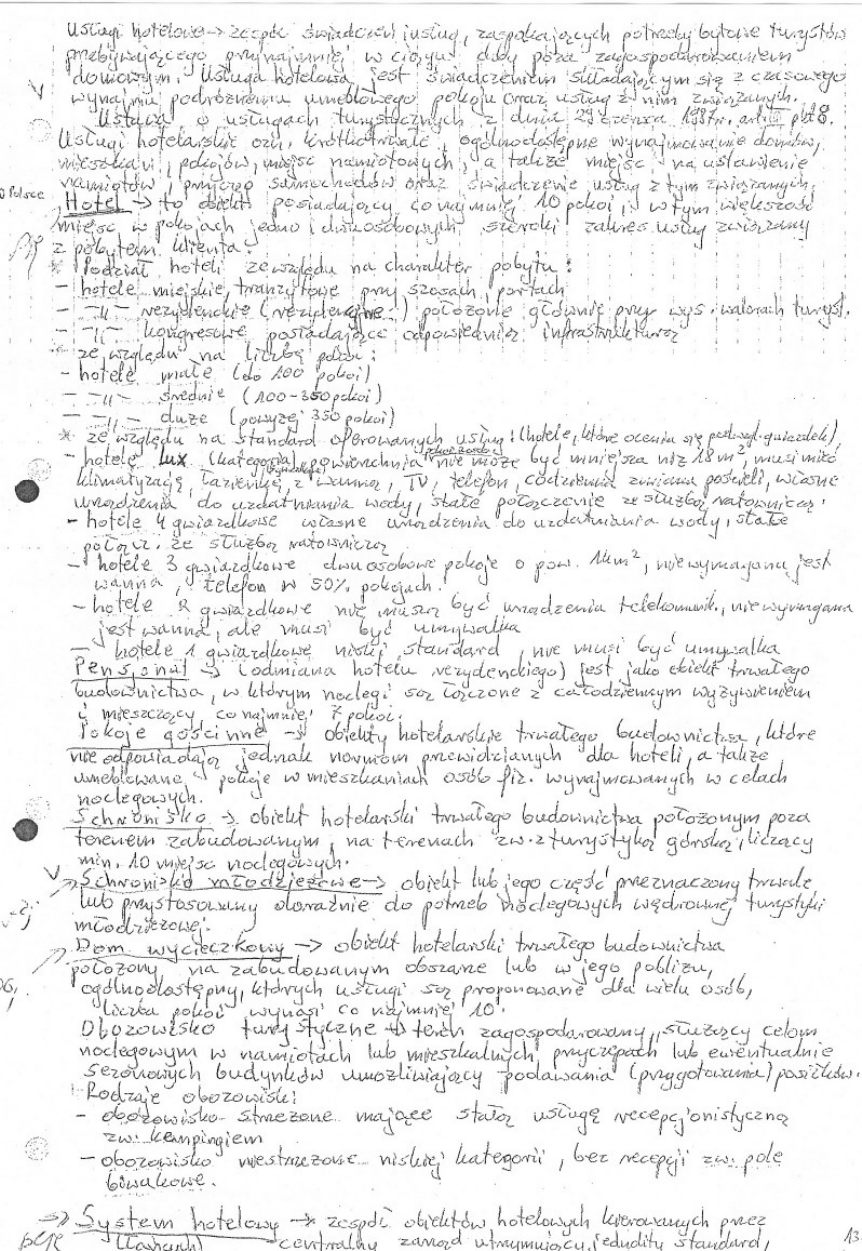 Usługi hotelowe → zespół świadczeń i usług, zaspokajających potrzeby bytowe turystów
przebywającego przynajmniej w ciągu doby poza zagospodarowaniem
domowym. Usługa hotelowa jest świadczeniem składającym się z czasowego
wynajmu podróżnemu umeblowego pokoju oraz usług z nim związanych.
Ustawa o usługach turystycznych z dnia 29 czerwca 1997r. art. pkt 8.
Usługi hotelarskie ozn. krótkotrwałe, ogólnodostępne wynajmowanie domów,
mieszkań, pokojów, miejsc namiotowych, a także miejsc na ustawienie
namiotów, przyczep samochodów oraz świadczenie usług z tym związanych.
Hotel → to obiekt posiadający co najmniej 10 pokoi, w tym większość
miejsc w pokojach jedno i dwuosobowych szeroki zakres usług związany
z pobytem klienta.
* Podział hoteli ze względu na charakter pobytu:
- hotele miejskie tranzytowe przy szosach, portach
- -11- rezydenckie (rezydencyjne) położone głównie przy wys. walorach turyst.
- -11- kongresowe posiadające odpowiednią infrastrukturę
* ze względu na liczbę pokoi:
- hotele małe (do 100 pokoi)
- -11- średnie (100-350 pokoi)
- -11- duże (powyżej 350 pokoi)
* ze względu na standard oferowanych usług: (hotele, które ocenia się gwiazdek)
- hotele lux (kategoria) powierzchnia nie może być mniejsza niż 18 m², musi mieć
klimatyzację, łazienkę z wanną, TV, telefon, codzienna zmiana pościeli, własne
urządzenia do uzdatniania wody, stałe połączenie ze służbą ratowniczą.
- hotele 4 gwiazdkowe własne urządzenia do uzdatniania wody, stałe
połącz. ze służbą ratowniczą
- hotele 3 gwiazdkowe dwuosobowe pokoje o pow. 14m², niewymagana jest
wanna, telefon w 50% pokojach.
- hotele 2 gwiazdkowe nie muszą być urządzenia telekomunik., niewymagana
jest wanna, ale musi być umywalka
- hotele 1 gwiazdkowe niski standard, nie musi być umywalka
Pensjonat → (odmiana hotelu rezydenckiego) jest jako obiekt trwałego
budownictwa, w którym noclegi są łączone z całodziennym wyżywieniem
i mieszczący co najmniej 7 pokoi.
Pokoje gościnne → obiekty hotelarskie trwałego budownictwa, które
nie odpowiadają jednak normom przewidzianych dla hoteli, a także
umeblowane pokoje w mieszkaniach osób fiz. wynajmowanych w celach
noclegowych.
Schronisko → obiekt hotelarski trwałego budownictwa położonym poza
terenem zabudowanym, na terenach zw. z turystyką górską, liczący
min. 10 miejsc noclegowych.
Schronisko młodzieżowe → obiekt lub jego część przeznaczony trwale
lub przystosowany doraźnie do potrzeb noclegowych wędrownej turystyki
młodzieżowej.
Dom wycieczkowy → obiekt hotelarski trwałego budownictwa
położony na zabudowanym obszarze lub w jego pobliżu,
ogólnodostępny, których usługi są proponowane dla wielu osób,
liczba pokoi wynosi co najmniej 10.
Obozowisko turystyczne → teren zagospodarowany, służący celom
noclegowym w namiotach lub mieszkalnych przyczepach lub ewentualnie
sezonowych budynków umożliwiający podawania (przygotowania) posiłków.
Rodzaje obozowisk:
- obozowisko strzeżone mające stałą usługę recepcjonistyczną
zw. kempingiem
- obozowisko niestrzeżone niskiej kategorii, bez recepcji zw. pole
biwakowe.
=> System hotelowy → zespół obiektów hotelowych kierowanych przez
centralny zarząd utrzymujący jednolity standard,
13